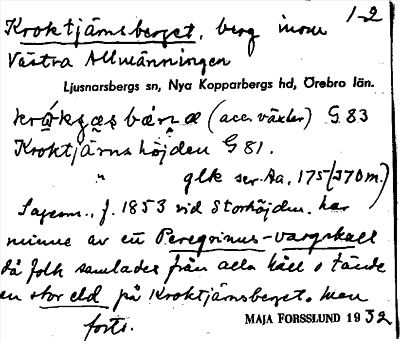 Kroktjärnsberget, berg inom 1-2
Västra Allmänningen
Ljusnarsbergs sn, Nya Kopparbergs hd, Örebro län.
(acc. växlar) G. 83
Kroktjärnshöjden G 81.
" glk ser. Aa, 175 (370 m.)
Sagesm., f. 1853 vid Storhöjden. har
minne av ett Peregrinus-vargskall
då folk samlades från alla håll o tände
en stor eld på Kroktjärnsberget. Men
forts. MAJA FORSSLUND 1932